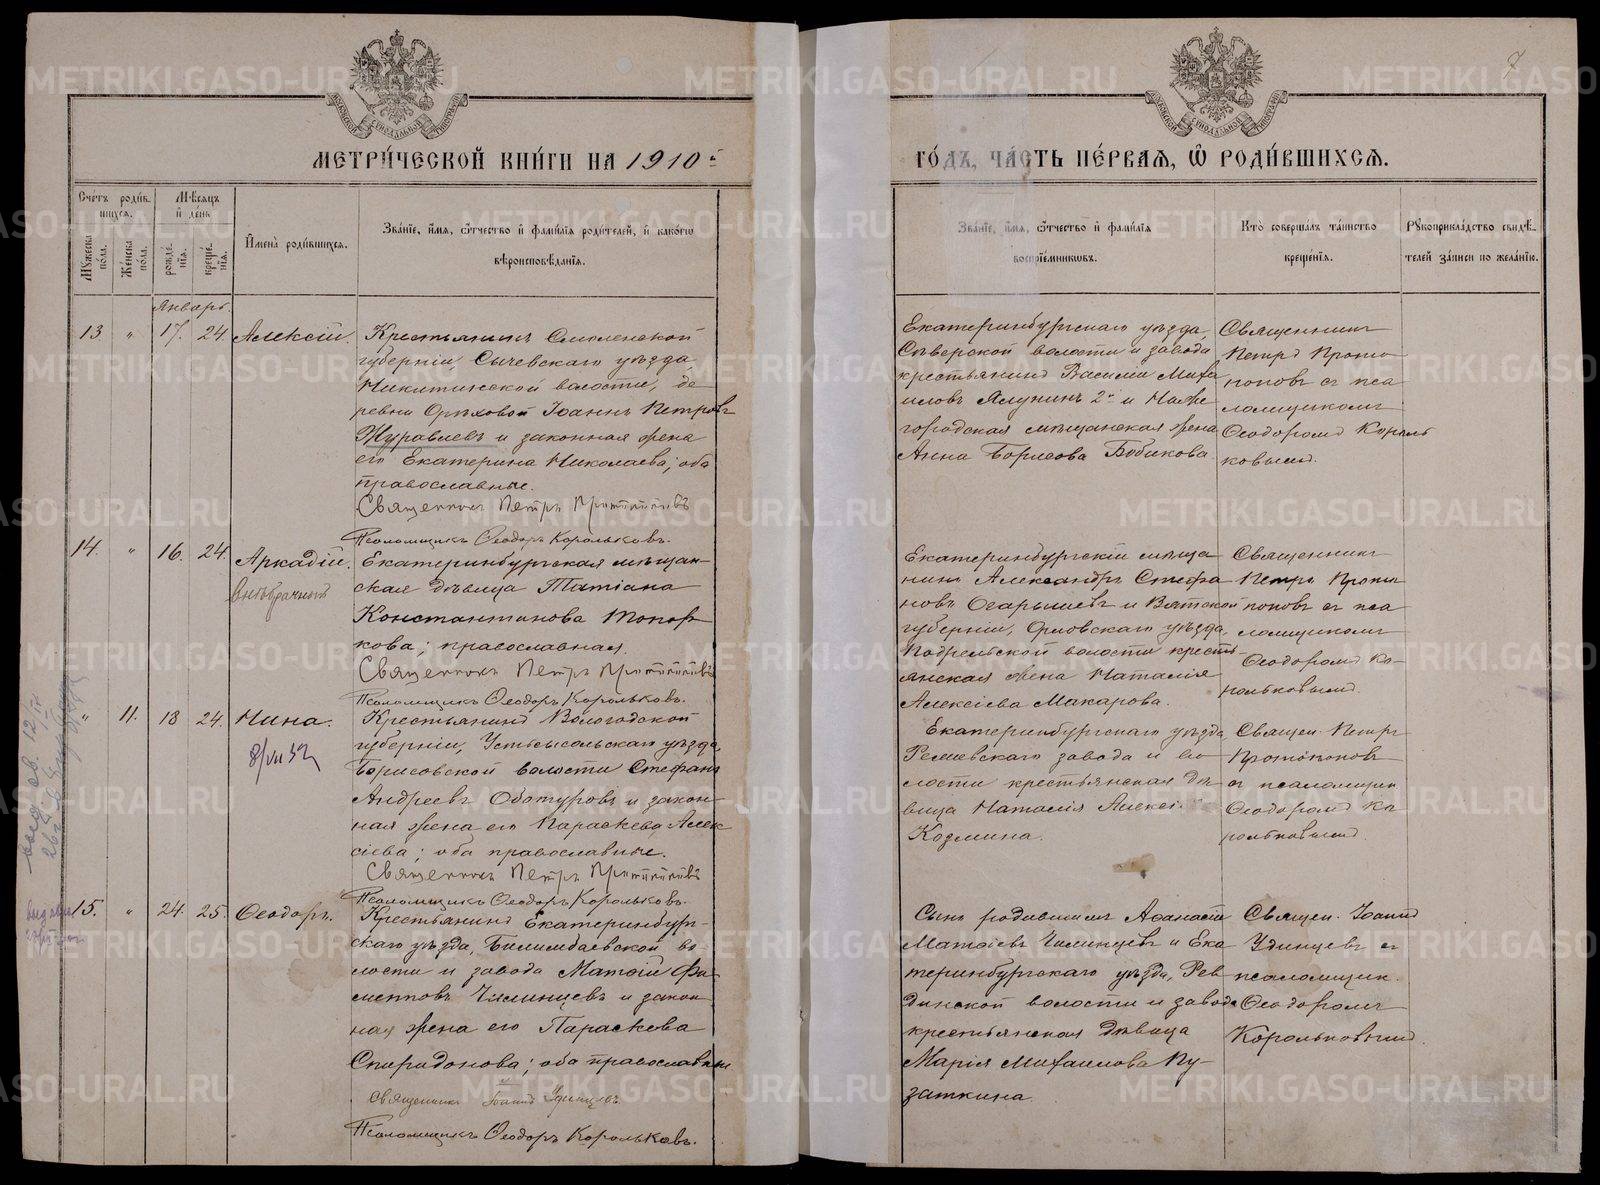 7
МЕТРИ́ЧЕСКОЙ КНИ́ГИ НА 1910 й
ГО́ДЪ, ЧА́СТЬ ПЕ́РВАЯ, Ѡ РОДИ́ВШИХСЯ.
Сче́тъ роди́в-
шихся.
Мѣ́сяцъ
и҆ де́нь
Му́жеска по́ла.
Же́нска по́ла.
рожде́нїя.
креще́нїя.
И҆мена̀ роди́вшихся.
Зва́нїе, и҆́мя, ѻ҆́тчество и҆ фами́лїя роди́телей, и҆ како́гѡ
вѣроисповѣ́данїя.
Зва́нїе, и҆́мя, ѻ҆́тчество и҆ фами́лїя
воспрїе́мникѡвъ.
Кто̀ соверша́лъ та́инство
креще́нїя.
Рꙋкоприкла́дство свидѣ́-
телей за́писи по жела́нїю.
Январь.
13 " 17. 24. Алексій.
Крестьянинъ Смоленской
губерніи, Сычевскаго уѣзда,
Никитинской волости, де
ревни Орѣховой Іоаннъ Петровъ
Журавлевъ и законная жена
его Екатерина Николаева; оба
православные.
Священникъ Петръ Протопоповъ
Псаломщикъ Ѳеодоръ Корольковъ.
Екатеринбургскаго уѣзда
Сѣверской волости и завода
крестьянинъ Василій Миха
иловъ Ялунинъ 2й и Ниже
городская мѣщанская жена
Анна Борисова Бобикова
Священникъ
Петръ Прото
поповъ съ пса
ломщикомъ
Ѳеодоромъ Король
ковымъ.
14. " 16. 24. Аркадій.
внѣбрачный
Екатеринбургская мѣщан-
ская дѣвица Татіана
Константинова Топор
кова; православная.
Священникъ Петръ Протопоповъ
Псаломщикъ Ѳеодоръ Корольковъ.
Екатеринбургскій мѣща
нинъ Александръ Стефа
новъ и Вятской
губерніи, Орловскаго уѣзда,
волости кресть-
янская жена Наталія
Алексіева Макарова.
Священникъ
Петръ Прото
поповъ съ пса
ломщикомъ
Ѳеодоромъ Ко-
рольковымъ.
" 11. 18 24. Нина.
Крестьянинъ Вологодской
губерніи, Устьсысольскаго уѣзда,
Борисовской волости Стефанъ
Андреевъ Обатуровъ и закон-
ная жена его Параскева Алек
сіева; оба православные.
Священникъ Петръ Протопоповъ
Псаломщикъ Ѳеодоръ Корольковъ.
Екатеринбургскаго уѣзда
завода и во
лости крестьянская дѣ
вица Наталія Алексі
Козмина.
Священ. Петръ
Протопоповъ
съ псаломщик
Ѳеодоромъ Ко
рольковымъ
15. " 24. 25. Ѳеодоръ.
Крестьянинъ Екатеринбург-
скаго уѣзда, Билимбаевской во-
лости и завода Матѳій Фи-
ментовъ Чилинцевъ и закон
ная жена его Параскева
Спиридонова; оба православные
Священникъ Іоаннъ Удинцевъ.
Псаломщикъ Ѳеодоръ Корольковъ.
Сынъ родившихъ Аѳанасій
Матѳіевъ Чилинцевъ и Ека
теринбургскаго уѣзда, Рев
динской волости и завода
крестьянская дѣвица
Марія Михаилова Пу-
заткина.
Священ. Іоаннъ
Удинцевъ съ
псаломщик.
Ѳеодоромъ
Корольковымъ
METRIKI.GASO-URAL.RU